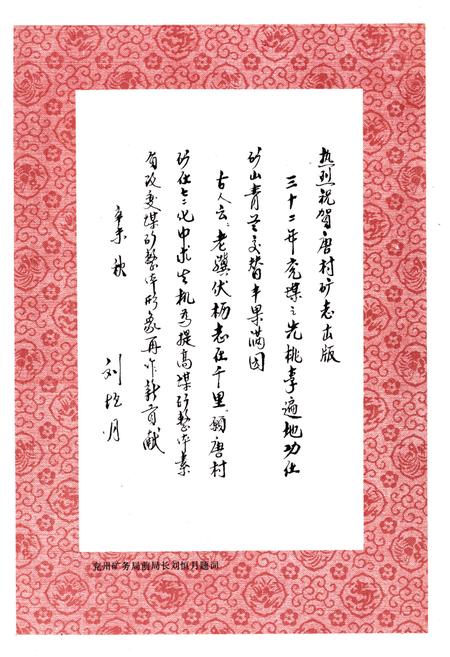 热烈祝贺唐村矿志出版
三十二年兖煤之先桃李遍地功在
矿山青芝交替丰果满园
古人云老骥伏枥志在千里愿唐村
矿在七二化中求生机为提高煤矿整体素
有改变煤矿整体形象再作新贡献
辛未秋
刘恒月
兖州矿务局前局长刘恒月题词